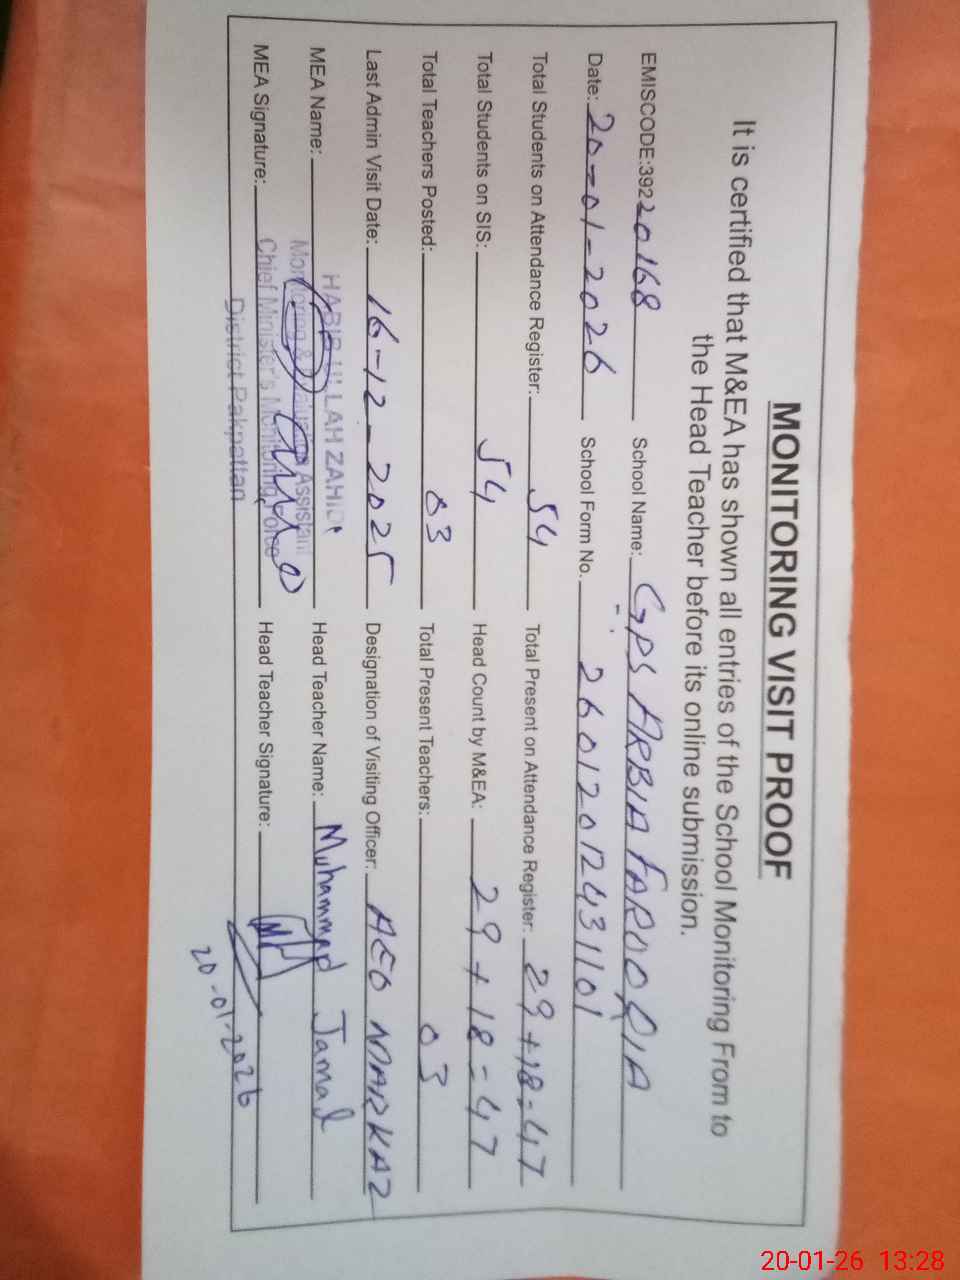 MONITORING VISIT PROOF
It is certified that M&EA has shown all entries of the School Monitoring From to
the Head Teacher before its online submission.
EMISCODE:39220168 School Name: GPS ARBIA FAROOQIA
Date: 20-01-2026 School Form No. 26012012431101
Total Students on Attendance Register: 54 Total Present on Attendance Register: 29+18=47
Total Students on SIS: 54 Head Count by M&EA: 29+18=47
Total Teachers Posted: 03 Total Present Teachers: 03
Last Admin Visit Date: 16-12-2025 Designation of Visiting Officer: AEO MARKAZ
MEA Name: Head Teacher Name: Muhammad Jamal
MEA Signature: Head Teacher Signature:
20-01-2026
HABIB ULLAH ZAHID
Monitoring & Evaluation Assistant
Chief Minister's Monitoring Force
District Pakpattan
20-01-26 13:28